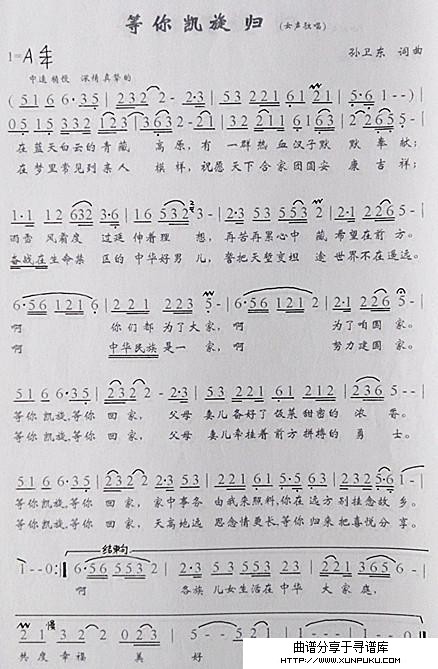 等你凯旋归 (女声独唱)
1=A
孙卫东 词曲
中速稍慢 深情真挚的
(5 1 6 6·3 5 | 2 3 2 2 - 2·3 | 5 5 3 2 2 1 6 1 2 1 | 5·3 5 6 1 - -) |
在蓝天白云的青藏 高原,有一群热血汉子默 默奉献;
在梦里常见到亲人 模样,祝愿天下合家团圆安 康吉祥;
1·1 1 2 6 3 2 3·6 | 1 6 5 3 2 2 - | 2·3 5 3 2 3 5 5 3 | 2·1 2 2 6 5 - |
雨雪风霜度 过延伸着理 想,再苦再累心中 藏,希望在前方。
奋战在生命禁 区的中华好男儿,誓把天堑变坦 途世界不在遥远。
6·5 6 1 2 1 6 | 2 2 1 2 2 3 5 - | 6·5 6 1 2 1 6 | 2·1 2 2 6 5 - |
啊 你们都为了大家,啊 为了咱国家。
啊 中华民族是一家,啊 努力建国家。
5 1 6 6·3 5 | 2 3 2 2 - 2·3 | 5 3 2 2 1 6 1 2 1 2 | 2 3 6 5 - |
等你凯旋,等你 回家, 父母 妻儿备好了饭菜甜密的 浓香。
等你凯旋,等你 回家, 父母 妻儿牵挂着前方拼搏的 勇士。
等你凯旋,等你 回家,家中事务 由我来照料,你在远方别挂念故乡。
等你凯旋,等你 回家,天高地远 思念情更长,等你归来把喜悦分享。
结束句
1 - - 0 :| 6·5 6 5 5 3 2 | 2·3 5 5 3 5 2·3 2 1 | 2 2 1 3 6 5 - |
啊 各族儿女生活在中华 大家庭,
慢
共度幸福 美 好
曲谱分享于寻谱库
HTTP://WWW.XUNPUKU.COM